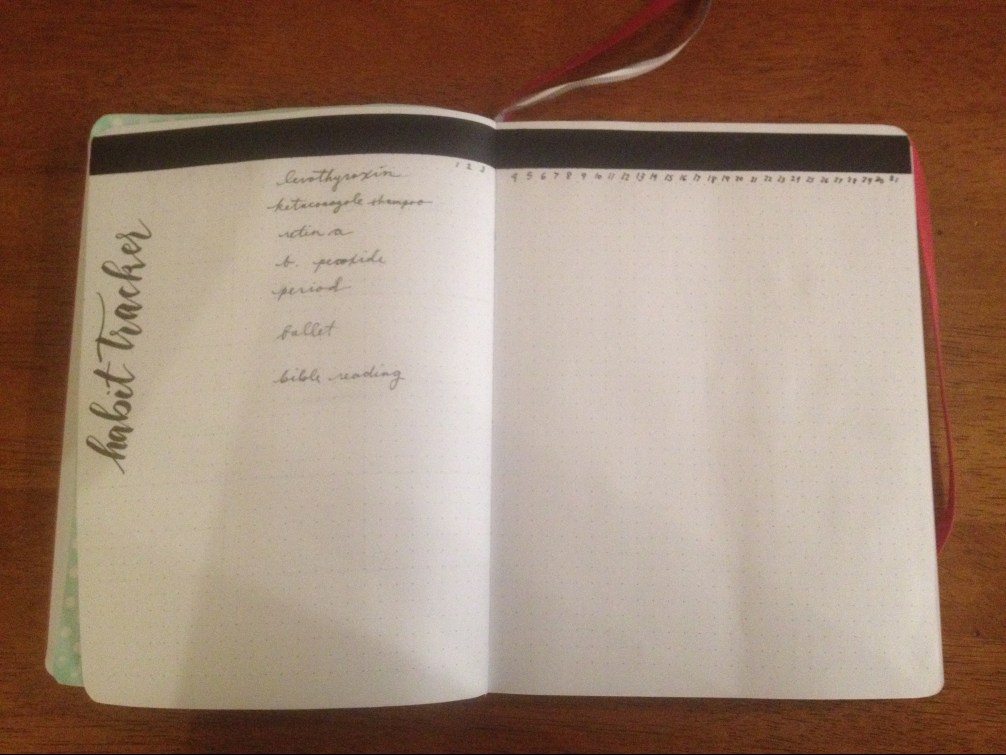 1 2 3 4 5 6 7 8 9 10 11 12 13 14 15 16 17 18 19 20 21 22 23 24 25 26 27 28 29 30 31
levothyroxin
ketaconazole shampoo
retin a
b. peroxide
period
ballet
bible reading
habit tracker